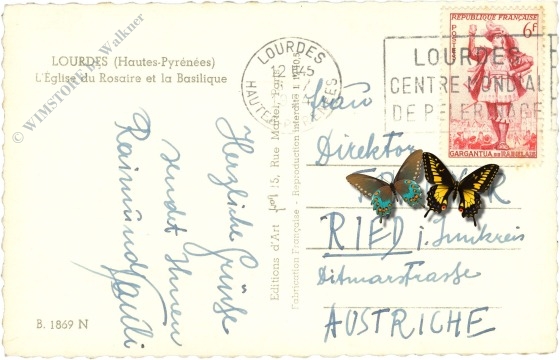 © WIMSTORE by Walkner
LOURDES (Hautes-Pyrénées)
L'Église du Rosaire et la Basilique
Herzliche Grüße
sendet Ihnen
Raimund Pauli
B. 1869 N
Editions d'Art 15, Rue Martel, Paris
Fabrication Française - Reproduction Interdite
LOURDES
12 45
HAUTES PYRÉNÉES
LOURDES
CENTRE MONDIAL
DE PELERINAGE
RÉPUBLIQUE FRANÇAISE
POSTES
6F
GARGANTUA DE RABELAIS
Frau
Direktor
RIED i. Innkreis
Ditmarstrasse
AUSTRICHE